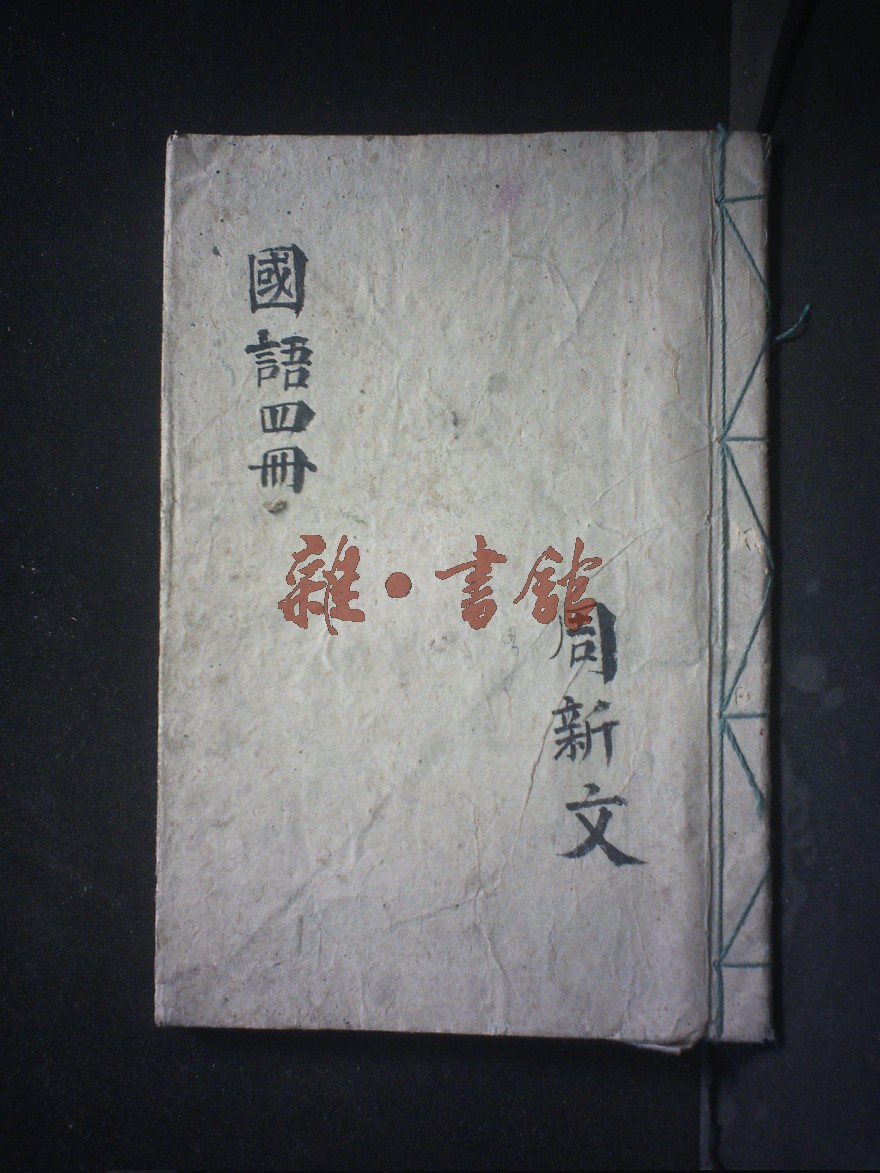 國語四冊
雜·書館
周新文